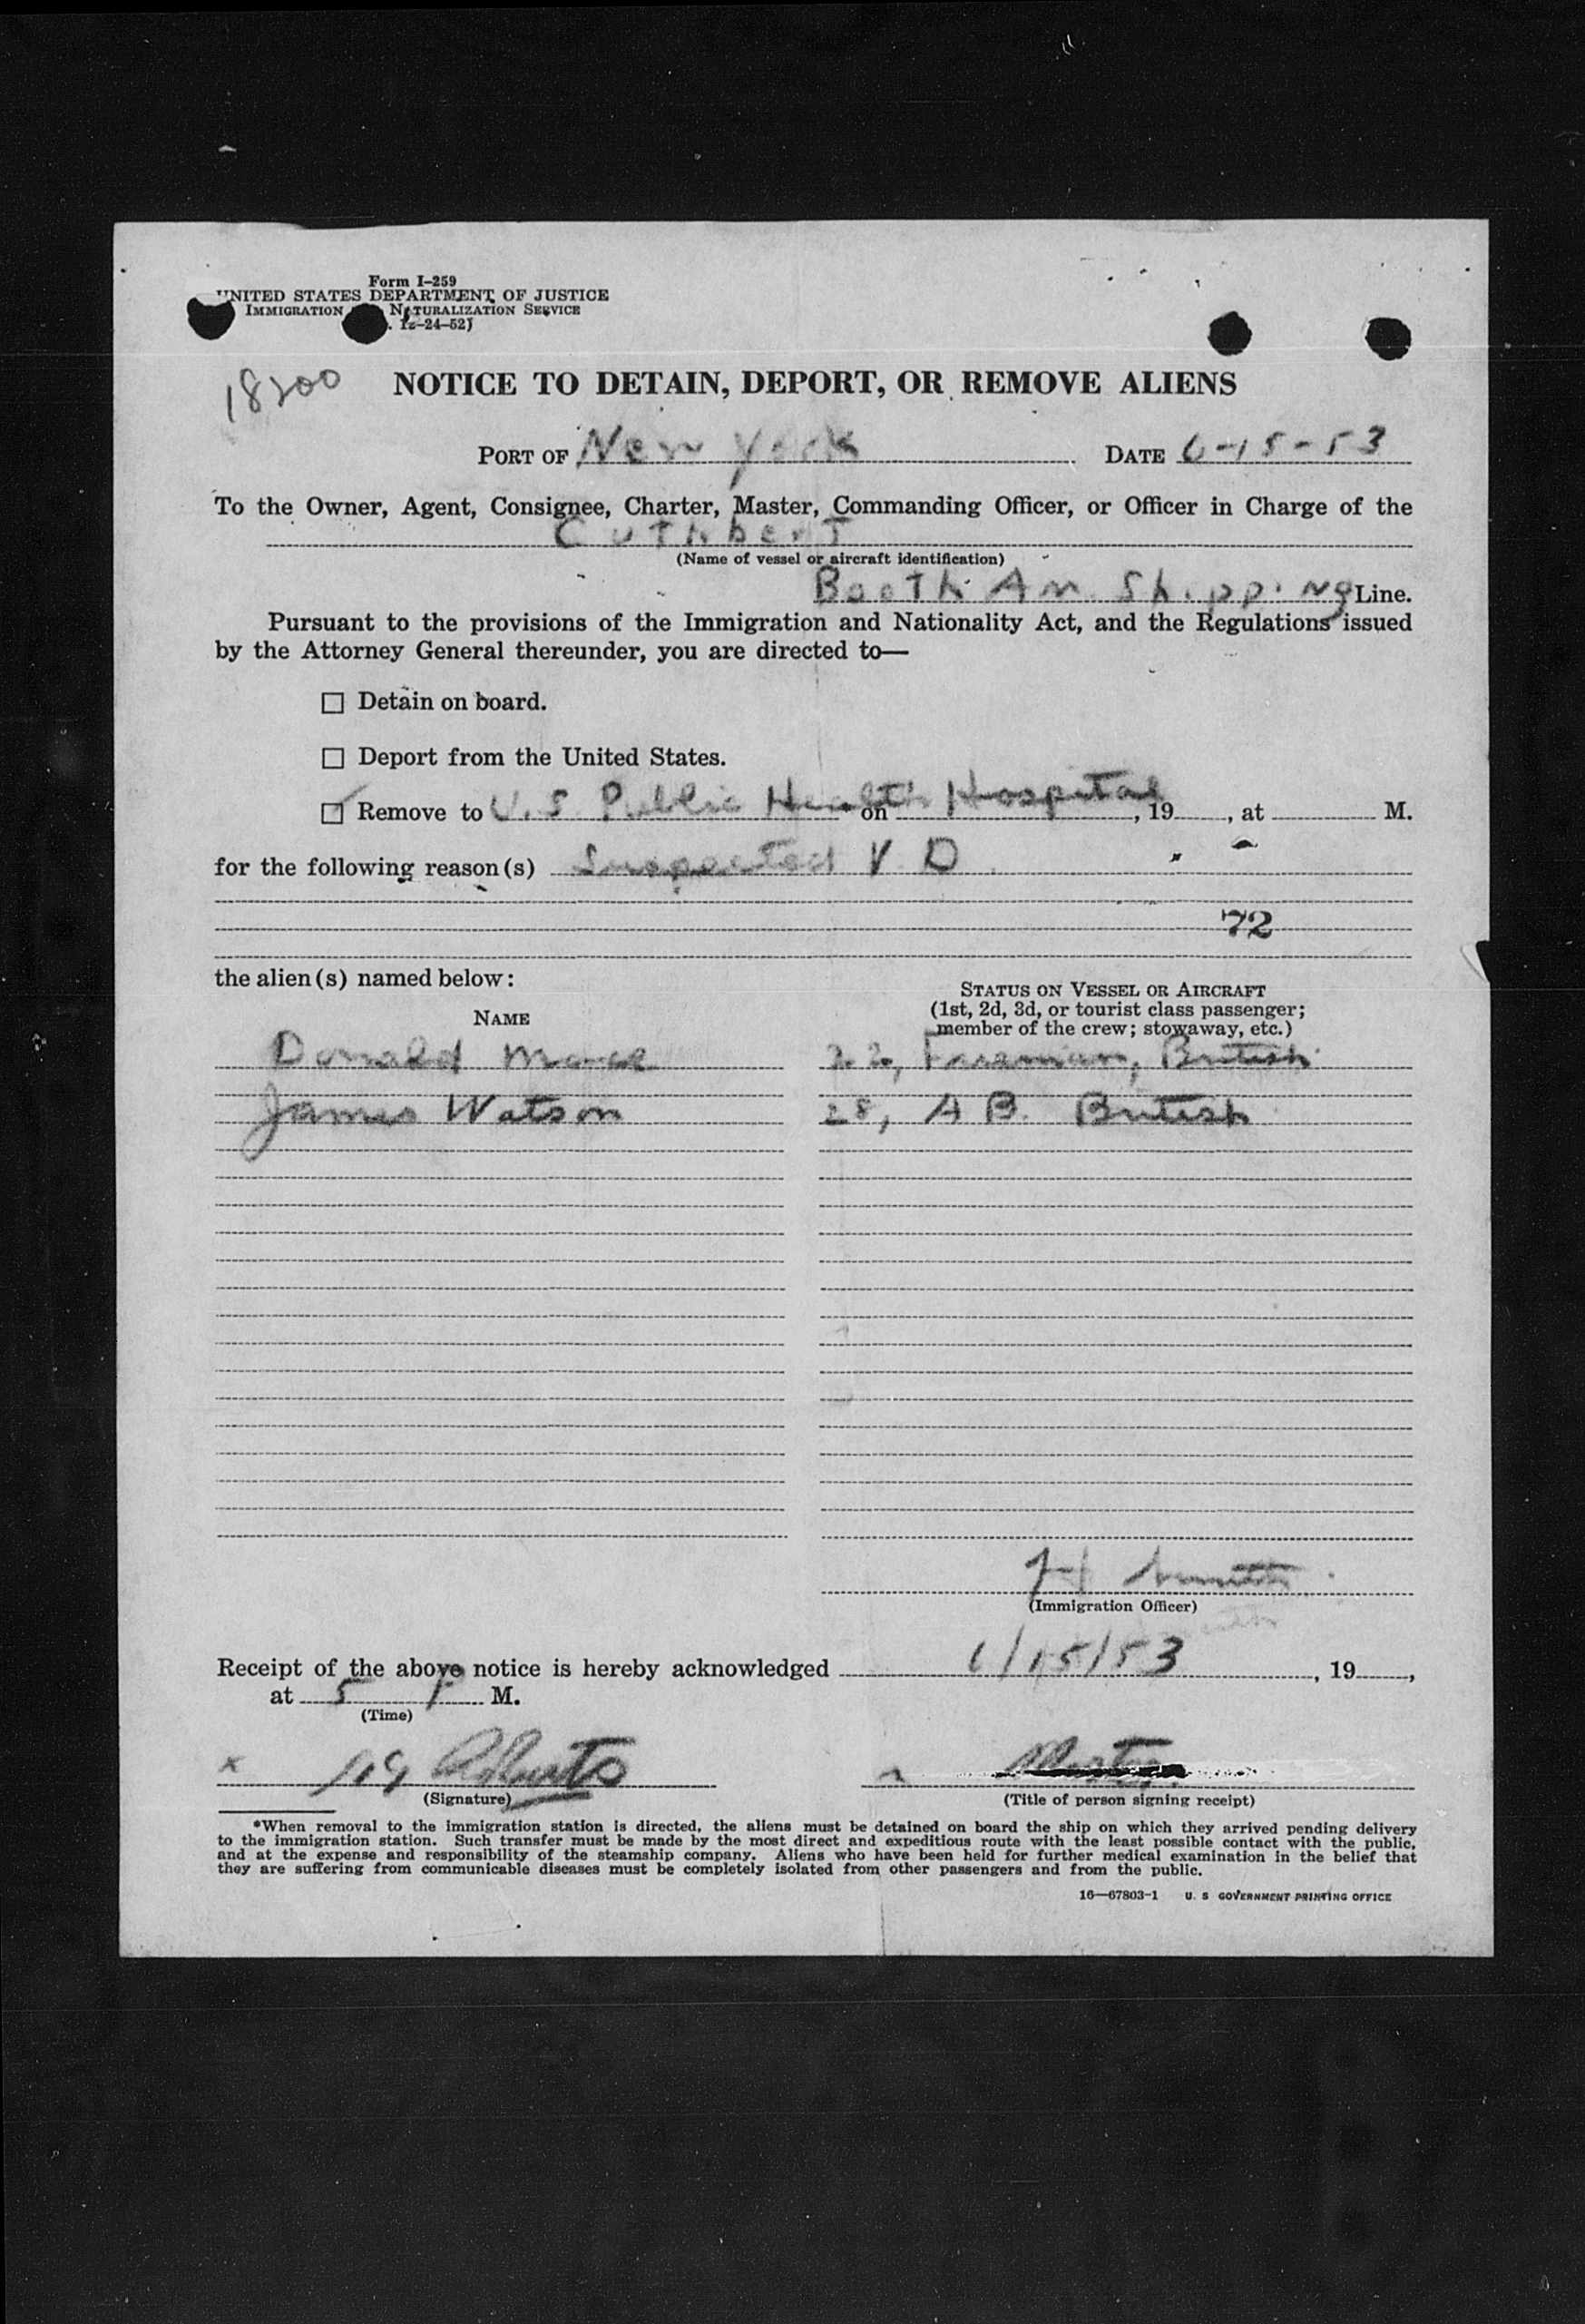 Form I-259
UNITED STATES DEPARTMENT OF JUSTICE
IMMIGRATION NATURALIZATION SERVICE
12-24-52)
18200
NOTICE TO DETAIN, DEPORT, OR REMOVE ALIENS
PORT OF New York DATE 6-15-53
To the Owner, Agent, Consignee, Charter, Master, Commanding Officer, or Officer in Charge of the
Cuthbert
(Name of vessel or aircraft identification)
Booth Am. Shipping Line.
Pursuant to the provisions of the Immigration and Nationality Act, and the Regulations issued
by the Attorney General thereunder, you are directed to—
☐ Detain on board.
☐ Deport from the United States.
☑ Remove to U.S. Public Health Hospital on , 19 , at M.
for the following reason(s) Suspected V D
72
the alien(s) named below:
STATUS ON VESSEL OR AIRCRAFT
(1st, 2d, 3d, or tourist class passenger;
NAME member of the crew; stowaway, etc.)
Donald 22, British
James Watson 28, AB. British
(Immigration Officer)
Receipt of the above notice is hereby acknowledged 6/15/53 , 19 ,
at 5 P M.
(Time)
x Roberts Master
(Signature) (Title of person signing receipt)
*When removal to the immigration station is directed, the aliens must be detained on board the ship on which they arrived pending delivery
to the immigration station. Such transfer must be made by the most direct and expeditious route with the least possible contact with the public,
and at the expense and responsibility of the steamship company. Aliens who have been held for further medical examination in the belief that
they are suffering from communicable diseases must be completely isolated from other passengers and from the public.
16—67803-1 U. S GOVERNMENT PRINTING OFFICE